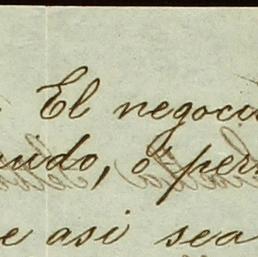 El negoci
uido, ó per
e asi sea